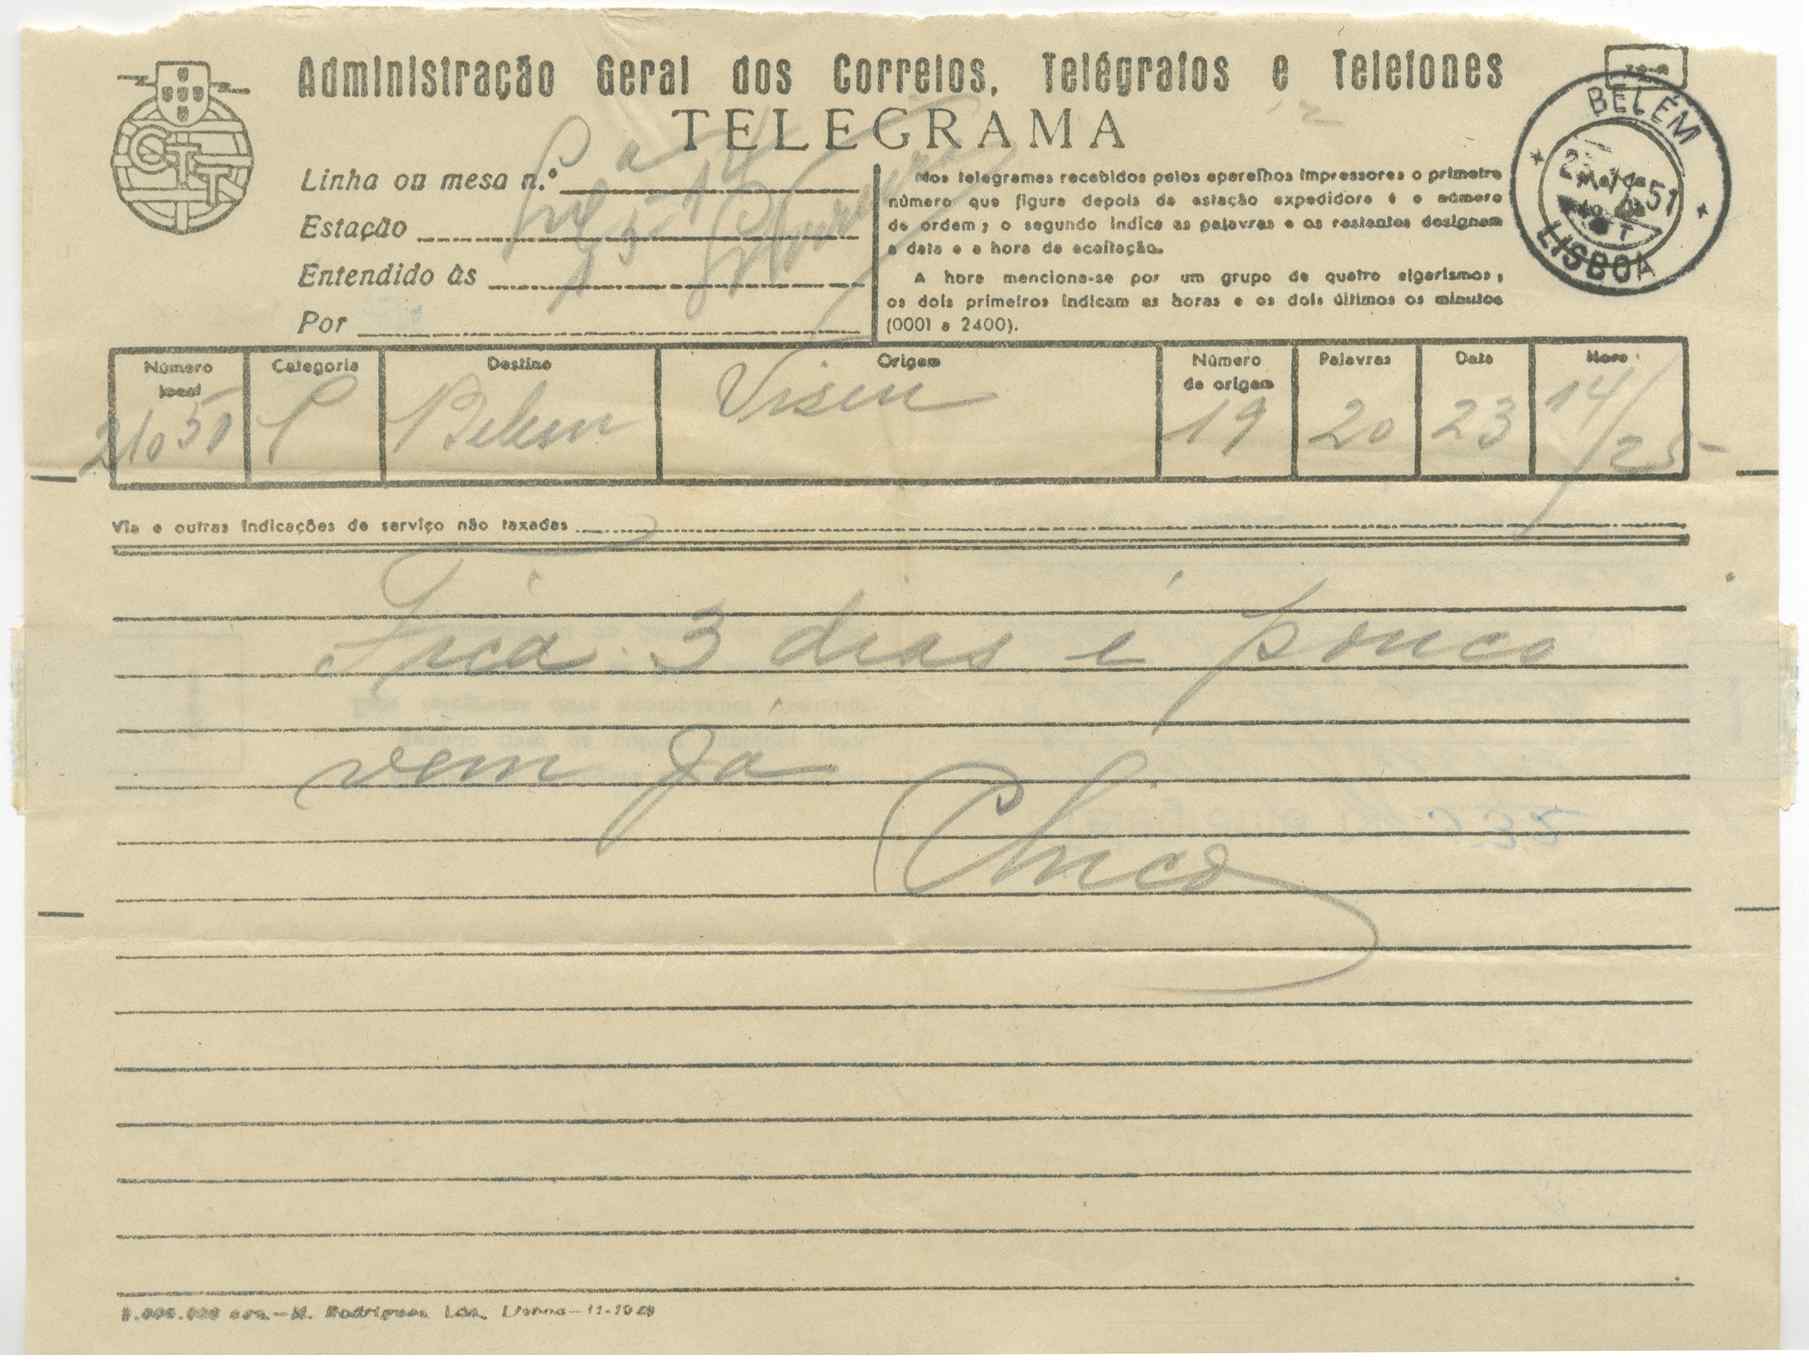 Administração Geral dos Correios, Telégrafos e Telefones
TELEGRAMA
CTT
BELÉM
51
LISBOA
Linha ou mesa n.º
Estação
Entendido às
Por
Nos telegramas recebidos pelos aparelhos impressores o primeiro
número que figura depois da estação expedidora é o número
de ordem; o segundo indica as palavras e os restantes designam
a data e a hora da aceitação.
A hora menciona-se por um grupo de quatro algarismos,
os dois primeiros indicam as horas e os dois últimos os minutos
(0001 a 2400).
Número local
Categoria
Destino
Origem
Número de origem
Palavras
Data
Hora
Belem
Viseu
19
20
23
14/25
Via e outras indicações de serviço não taxadas
Fica 3 dias é pouco
vem já
Chico
Rodrigues Lda. Lisboa